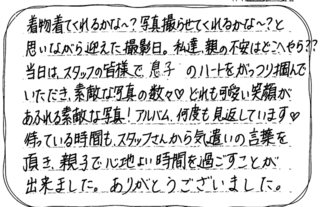 着物着てくれるかな〜？写真撮らせてくれるかな〜？と
思いながら迎えた撮影日。私達、親の不安はどこへやら??
当日は、スタッフの皆様で息子 のハートをがっつり掴んで
いただき、素敵な写真の数々♡どれも可愛い笑顔が
あふれる素敵な写真！アルバム、何度も見返しています♡
待っている時間も、スタッフさんから気遣いの言葉を
頂き、親子で心地よい時間を過ごすことが
出来ました。ありがとうございました。